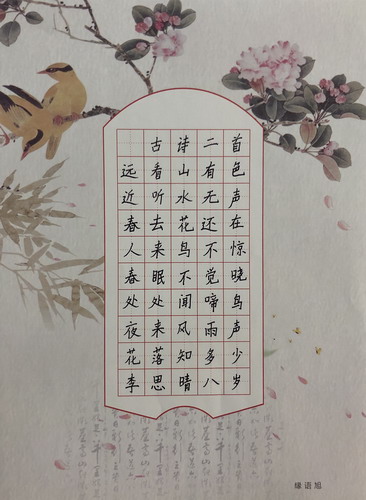 古诗二首
远看山有色
近听水无声
春去花还在
人来鸟不惊
春眠不觉晓
处处闻啼鸟
夜来风雨声
花落知多少
李思晴八岁
缘语旭